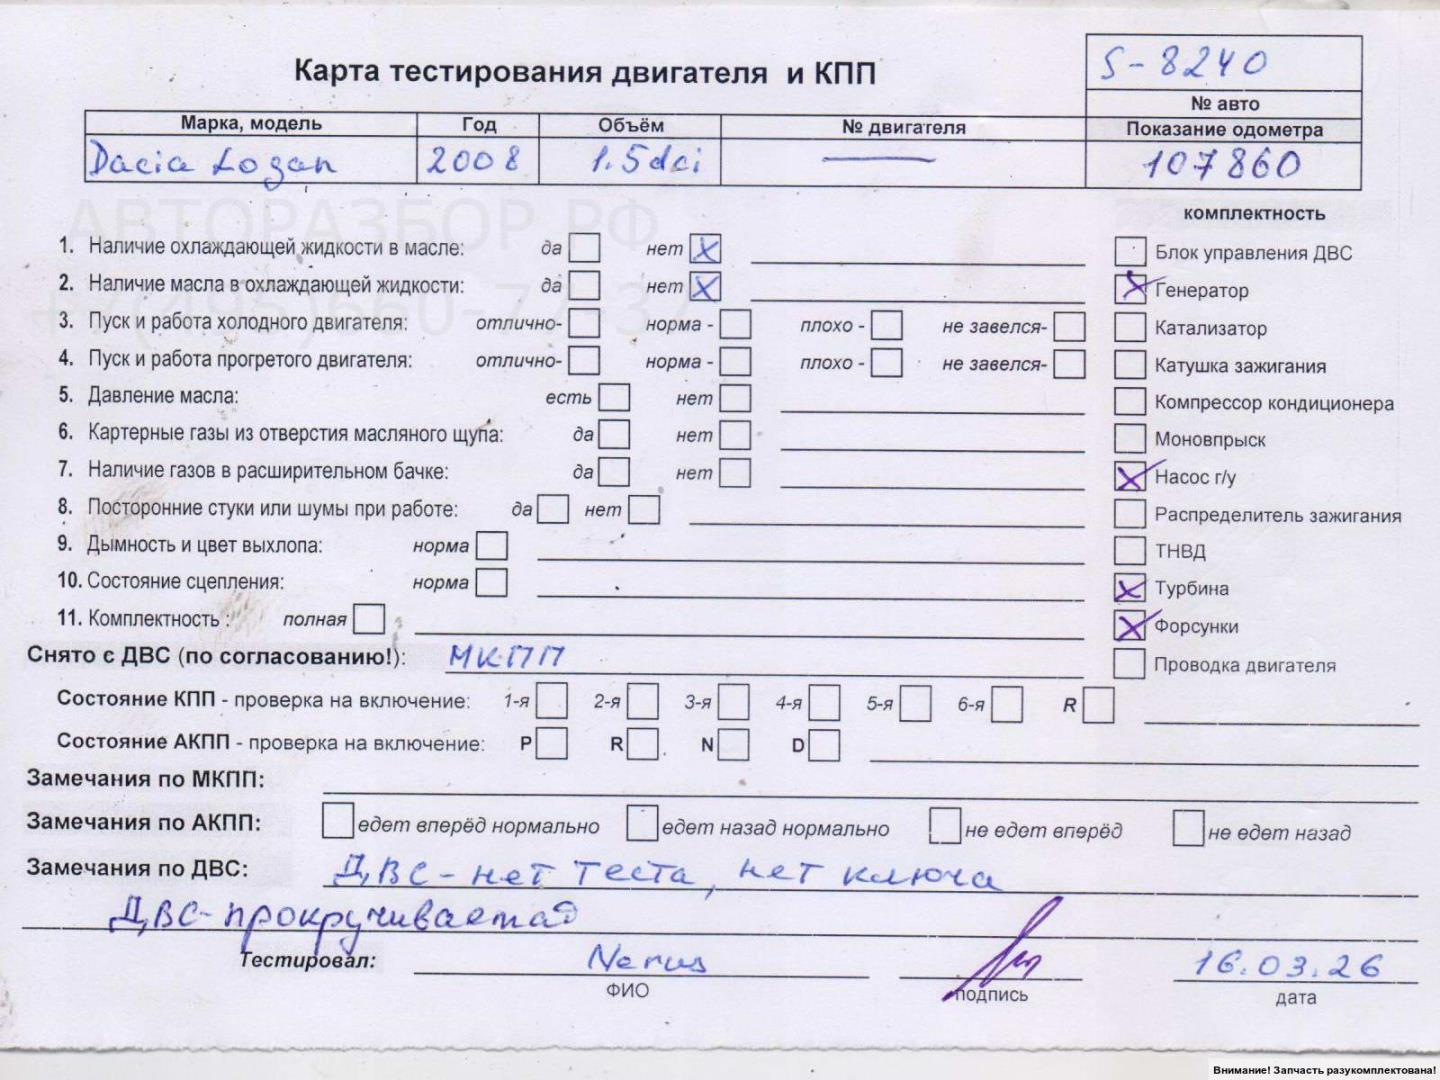 Карта тестирования двигателя и КПП
S-8240
№ авто
Марка, модель Год Объём № двигателя Показание одометра
Dacia Logan 2008 1.5dci — 107860
АВТОРАЗБОР.РФ
комплектность
1. Наличие охлаждающей жидкости в масле: да нет X
Блок управления ДВС
2. Наличие масла в охлаждающей жидкости: да нет X
X Генератор
3. Пуск и работа холодного двигателя: отлично- норма - плохо - не завелся-
Катализатор
4. Пуск и работа прогретого двигателя: отлично- норма - плохо - не завелся-
Катушка зажигания
5. Давление масла: есть нет
Компрессор кондиционера
6. Картерные газы из отверстия масляного щупа: да нет
Моновпрыск
7. Наличие газов в расширительном бачке: да нет
X Насос г/у
8. Посторонние стуки или шумы при работе: да нет
Распределитель зажигания
9. Дымность и цвет выхлопа: норма
ТНВД
10. Состояние сцепления: норма
X Турбина
11. Комплектность : полная
X Форсунки
Снято с ДВС (по согласованию!): МКПП
Проводка двигателя
Состояние КПП - проверка на включение: 1-я 2-я 3-я 4-я 5-я 6-я R
Состояние АКПП - проверка на включение: P R N D
Замечания по МКПП:
Замечания по АКПП: едет вперёд нормально едет назад нормально не едет вперёд не едет назад
Замечания по ДВС: ДВС - нет теста, нет ключа
ДВС - прокручивается
Тестировал:
16.03.26
ФИО подпись дата
Внимание! Запчасть разукомплектована!